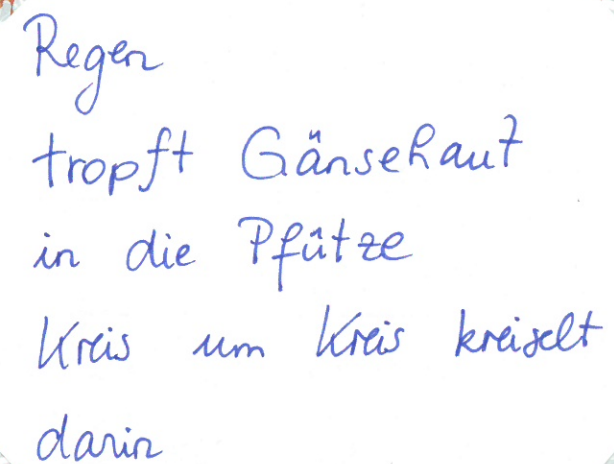 Regen
tropft Gänsehaut
in die Pfütze
Kreis um Kreis kreiselt
darin